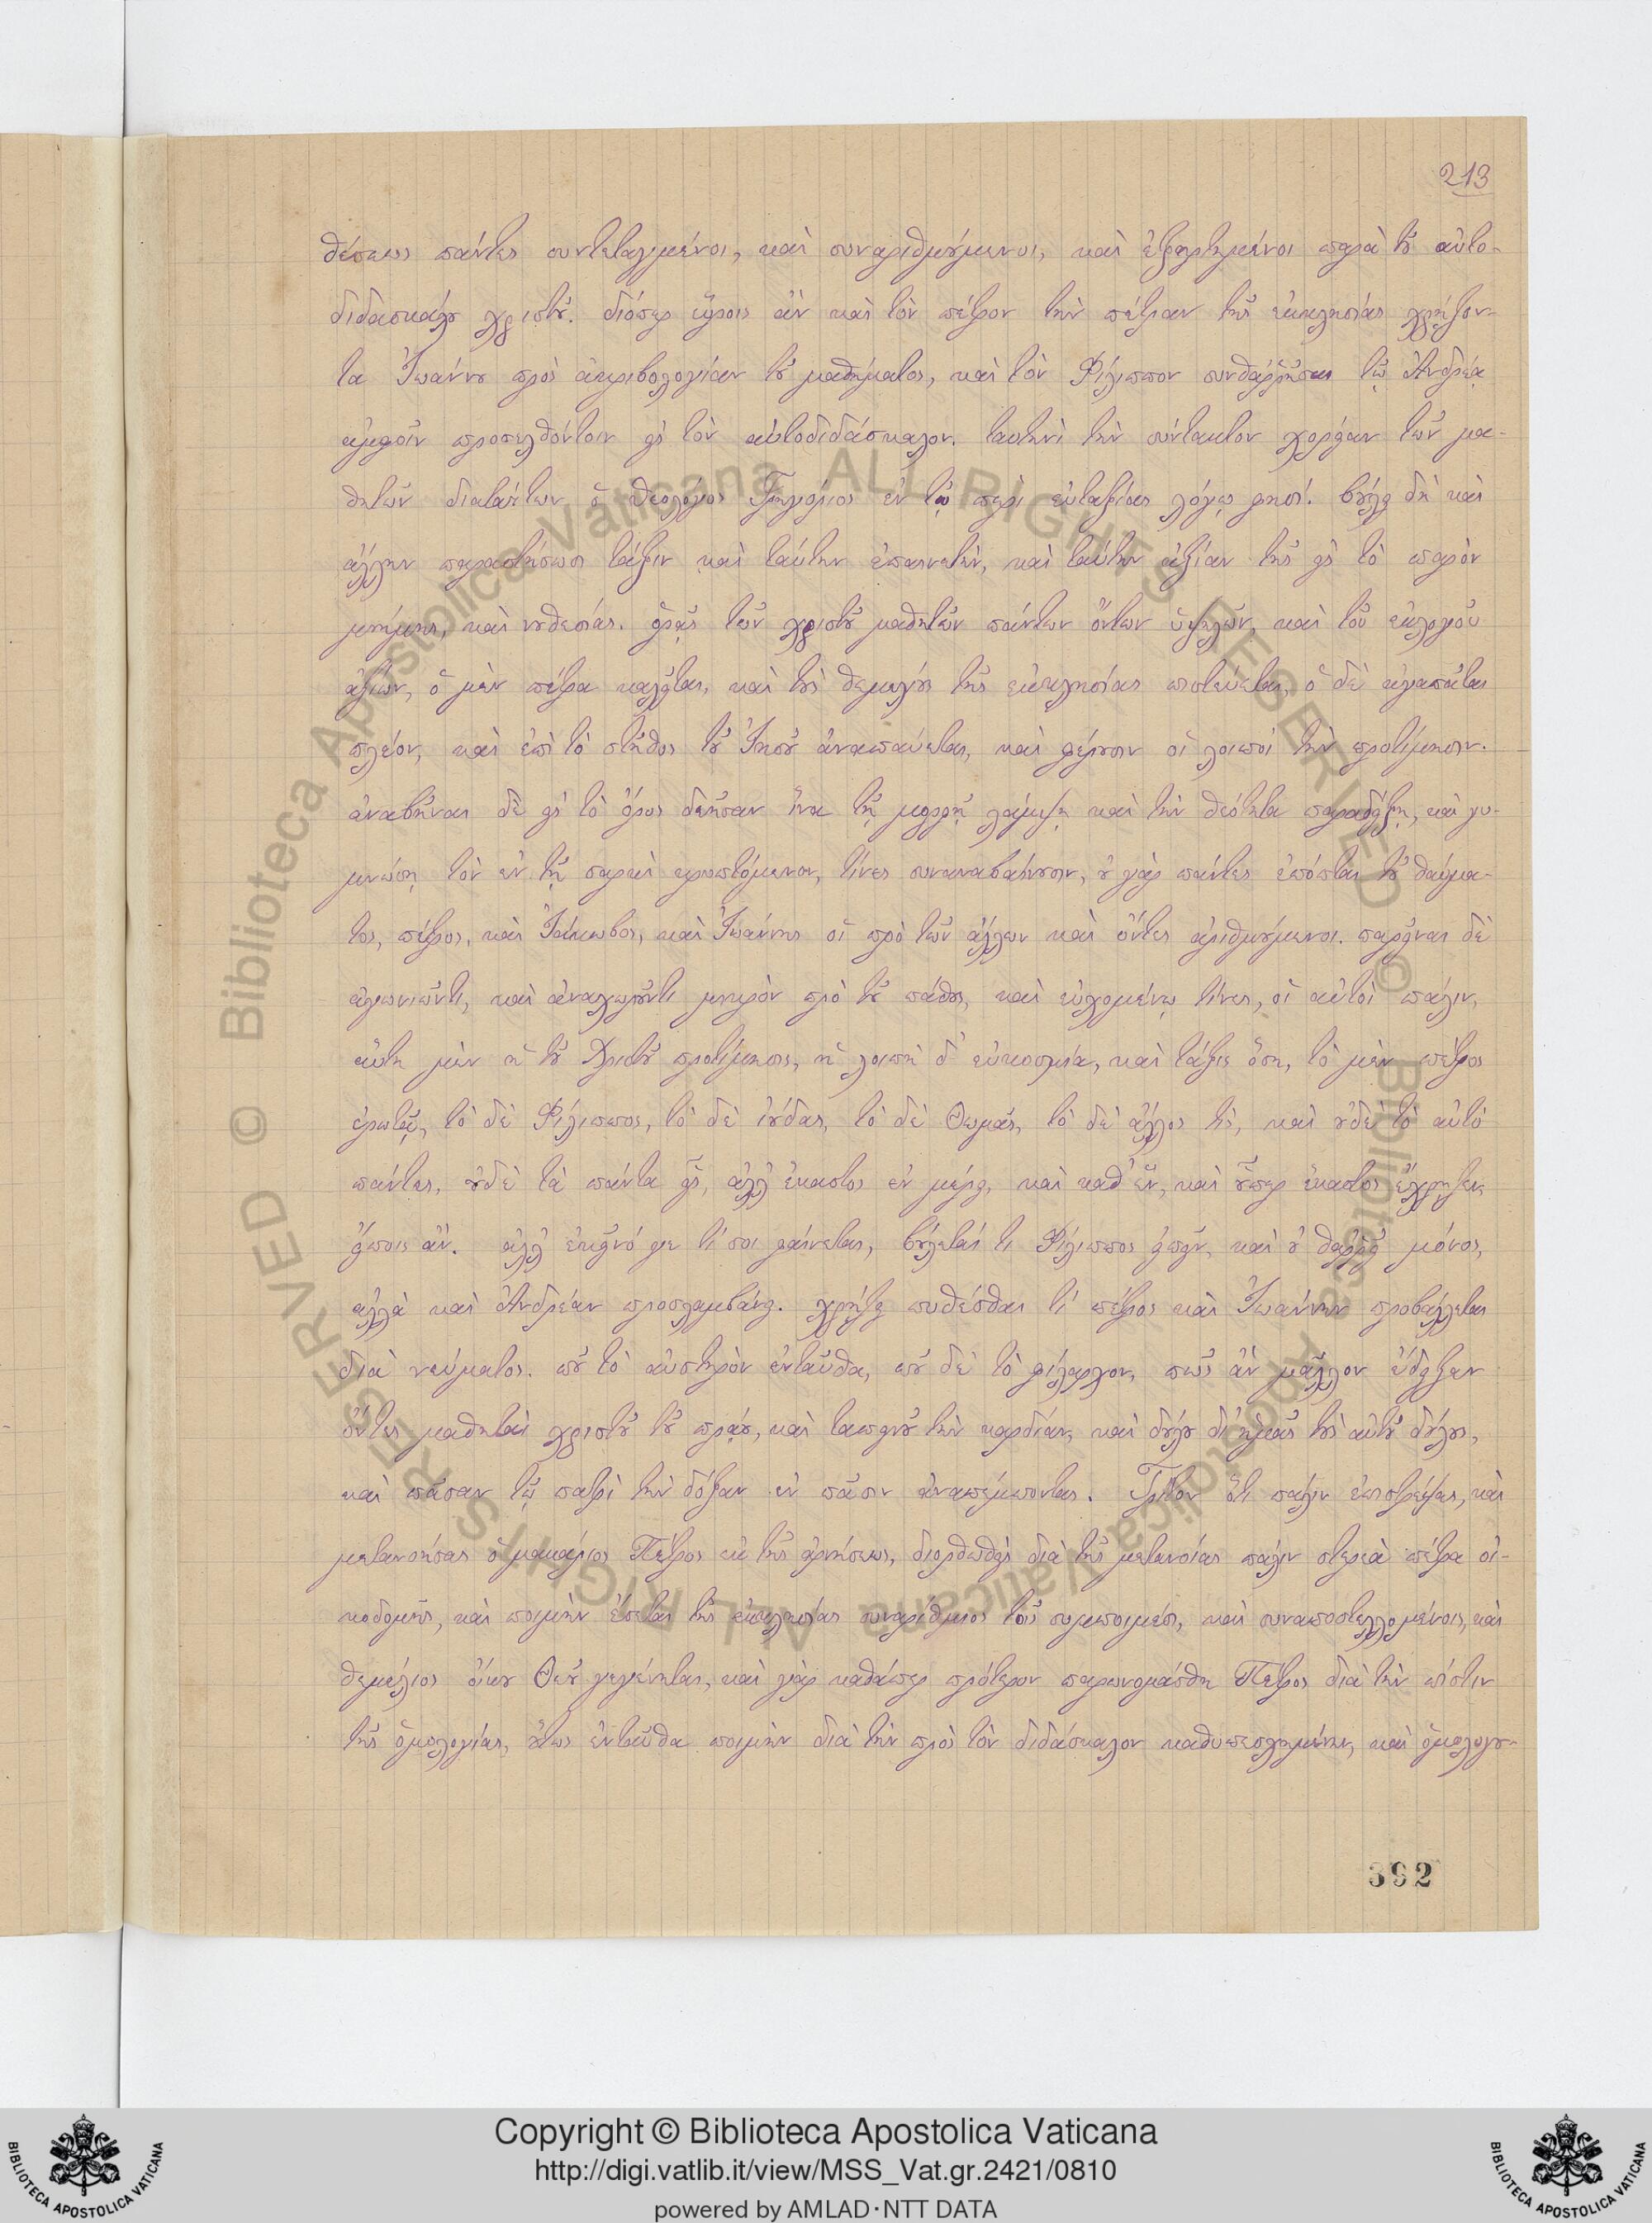 213
θέσεως πάντες συντεταγμένοι, καὶ συναριθμούμενοι, καὶ ἐξηρτημένοι παρὰ τοῦ αὐτο-
διδασκάλου χριστοῦ. διόπερ εὕροις ἂν καὶ τὸν πέτρον τὴν πέτραν τῆς ἐκκλησίας χρήζον-
τα Ἰωάννου πρὸς ἀκριβολογίαν τοῦ μαθήματος, καὶ τὸν Φίλιππον συνθαῤῥῆσαι τῷ Ἀνδρέᾳ
ἀμφοῖν προσελθόντοιν εἰς τὸν αὐτοδιδάσκαλον. ταυτηνὶ τὴν σύντακτον χορείαν τῶν μα-
θητῶν διατάττων ὁ θεολόγος Γρηγόριος ἐν τῷ περὶ εὐταξίας λόγῳ φησί. βούλει δὴ καὶ
ἄλλην παραστήσωσι τάξιν καὶ ταύτην ἐπαινετὴν, καὶ ταύτην ἀξίαν τῆς εἰς τὸ παρὸν
μνήμης, καὶ νουθεσίας. ὁρᾷς τῶν χριστοῦ μαθητῶν πάντων ὄντων ὑψηλῶν, καὶ τοῦ ἐκλογοῦ
ἀξίων, ὁ μὲν πέτρα καλεῖται, καὶ τοὺς θεμελίους τῆς ἐκκλησίας πιστεύεται, ὁ δὲ ἀγαπᾶται
πλέον, καὶ ἐπὶ τὸ στῆθος τοῦ Ἰησοῦ ἀναπαύεται, καὶ φέρουσιν οἱ λοιποὶ τὴν προτίμησιν.
ἀναβῆναι δὲ εἰς τὸ ὄρος δεῆσαν ἵνα τῇ μορφῇ λάμψῃ καὶ τὴν θεότητα παραδείξῃ, καὶ γυ-
μνώσῃ τὸν ἐν τῇ σαρκὶ κρυπτόμενον, τίνες συναναβαίνουσιν, οὐ γὰρ πάντες ἐπόπται τοῦ θαύμα-
τος, πέτρος, καὶ Ἰάκωβος, καὶ Ἰωάννης οἱ πρὸ τῶν ἄλλων καὶ ὄντες ἀριθμούμενοι. παρεῖναι δὲ
ἀγωνιῶντι, καὶ ἀναχωροῦντι μικρὸν πρὸ τοῦ πάθους, καὶ εὐχομένῳ τίνες, οἱ αὐτοὶ πάλιν,
αὕτη μὲν ἡ τοῦ Χριστοῦ προτίμησις, ἡ λοιπὴ δ' εὐκοσμία, καὶ τάξις ὅση, τὸ μὲν πέτρος
ἐρωτᾷ, τὸ δὲ Φίλιππος, τὸ δὲ ἰούδας, τὸ δὲ Θωμᾶς, τὸ δὲ ἄλλος τὶς, καὶ οὐδὲ τὸ αὐτὸ
πάντες, οὐδὲ τὰ πάντα εἷς, ἀλλ' ἕκαστος ἐν μέρει, καὶ καθ' ἓν, καὶ οὗπερ ἕκαστος ἔχρηζεν,
εἴποις ἄν. ἀλλ' ἐκεῖνό γε τί σοι φαίνεται, βούλεταί τι Φίλιππος εἰπεῖν, καὶ οὐ θαῤῥεῖ μόνος,
ἀλλὰ καὶ Ἀνδρέαν προσλαμβάνει. χρήζει πυθέσθαι τί πέτρος καὶ Ἰωάννην προβάλλεται
διὰ νεύματος. ποῦ τὸ αὐστηρὸν ἐνταῦθα, ποῦ δὲ τὸ φίλαρχον, πῶς ἂν μᾶλλον ἔδειξαν
ὄντες μαθηταὶ χριστοῦ τοῦ πράου, καὶ ταπεινοῦ τὴν καρδίαν, καὶ δούλου δι' ἡμᾶς τοὺς αὐτοῦ δούλους,
καὶ πᾶσαν τῷ πατρὶ τὴν δόξαν ἐν πᾶσιν ἀναπέμποντας. Τρίτον ὅτι πάλιν ἐπιστρέψας, καὶ
μετανοήσας ὁ μακάριος Πέτρος ἐκ τῆς ἀρνήσεως, διορθωθεὶς διὰ τῆς μετανοίας πάλιν στερεὰ πέτρα οἰ-
κοδομῆς, καὶ ποιμὴν ἕπεται τῆς ἐκκλησίας συναρίθμιος τοῖς συμποιμέσι, καὶ συναποστελλομένοις, καὶ
θεμέλιος οἴκου Θεοῦ γεγένηται, καὶ γὰρ καθάπερ πρότερον παρωνομάσθη Πέτρος διὰ τὴν πίστιν
τῆς ὁμολογίας, οὕτως ἐνταῦθα ποιμὴν διὰ τὴν πρὸς τὸν διδάσκαλον καθυπεσχημένην, καὶ ὁμολογου-
392
© Biblioteca Apostolica Vaticana ALL RIGHTS RESERVED © Biblioteca Apostolica Vaticana ALL RIGHTS RESERVED
Copyright © Biblioteca Apostolica Vaticana
http://digi.vatlib.it/view/MSS_Vat.gr.2421/0810
powered by AMLAD·NTT DATA
BIBLIOTECA APOSTOLICA VATICANA
BIBLIOTECA APOSTOLICA VATICANA